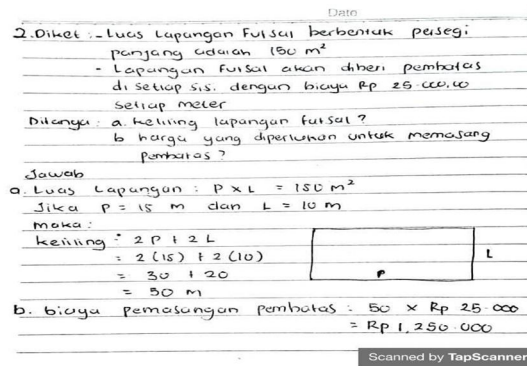 Date
2. Diket : - Luas Lapangan Futsal berbentuk persegi
panjang adalah 150 m²
- Lapangan Futsal akan diberi pembatas
di setiap sisi dengan biaya Rp 25.000,00
setiap meter
Ditanya : a. keliling lapangan futsal ?
b harga yang diperlukan untuk memasang
pembatas ?
Jawab
a. Luas Lapangan : P x L = 150 m²
Jika P = 15 m dan L = 10 m
maka :
keliling : 2 P + 2 L
= 2 (15) + 2 (10)
= 30 + 20
= 50 m
L
P
b. biaya pemasangan pembatas : 50 x Rp 25.000
= Rp 1.250.000
Scanned by TapScanner